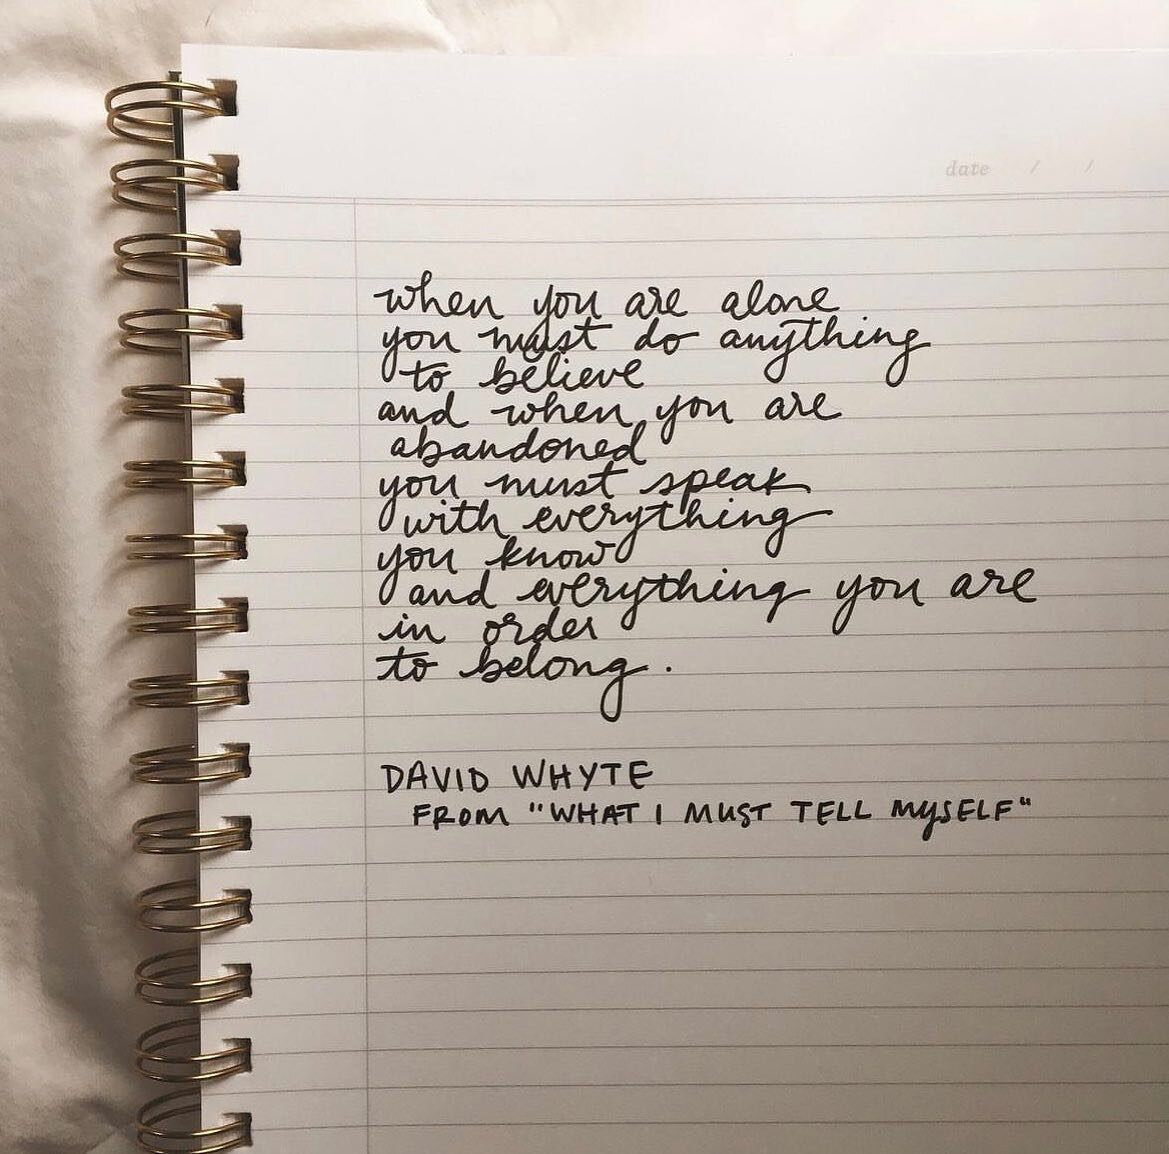 date / /
when you are alone
you must do anything
to believe
and when you are
abandoned
you must speak
with everything
you know
and everything you are
in order
to belong.
DAVID WHYTE
FROM "WHAT I MUST TELL MYSELF"